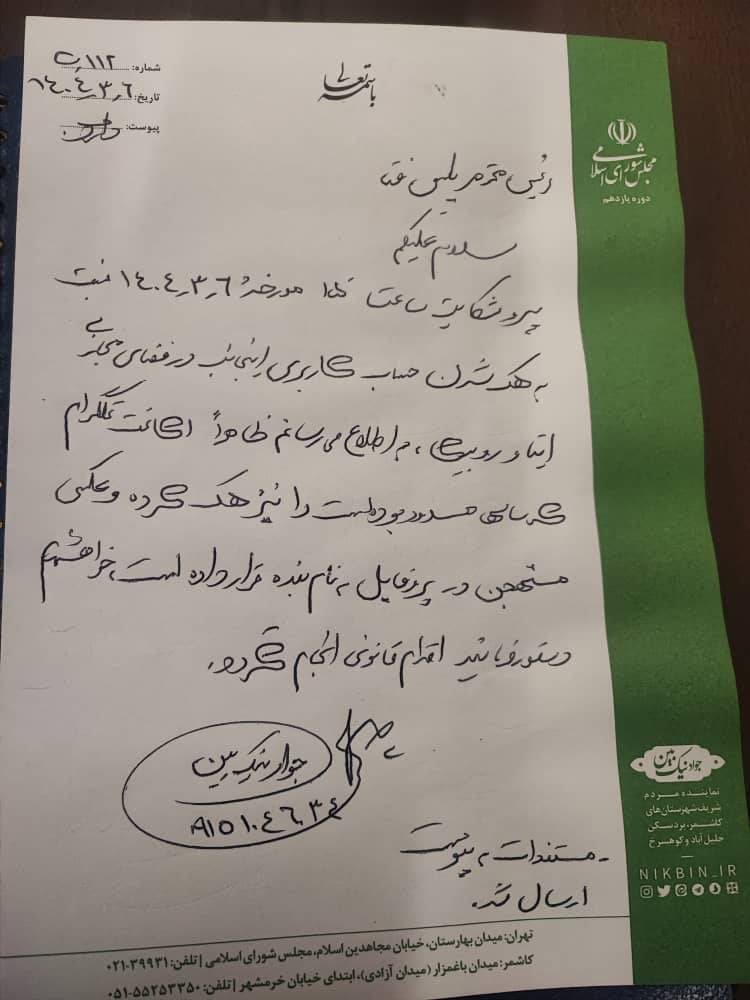 شماره: ۱۱۲ر
تاریخ: ۱۴۰۴٫۳٫۶
پیوست: دارد
باسمه تعالی
مجلس شورای اسلامی
دوره یازدهم
رئیس محترم پلیس فتا
سلام علیکم
پیرو شکایت ساعت مورخهٔ ۱۴۰۴٫۳٫۶ نسبت
به هک شدن حساب کاربری اینجانب در فضای مجازی
ایتا و روبیکا، به اطلاع می‌رسانم ظاهراً اکانت تلگرام
که سالها مسدود بوده است را نیز هک کرده و عکسی
مستهجن در پروفایل به نام بنده قرار داده است، خواهشمندم
دستور فرمائید اقدام قانونی انجام گردد.
جواد نیک بین
۹۱۵۱۰۴۶۰۳۴
- مستندات به پیوست
ارسال شد.
جواد نیک‌بین
نماینده مردم
شریف شهرستان‌های
کاشمر، بردسکن
خلیل‌آباد و کوهسرخ
NIKBIN_IR
تهران: میدان بهارستان، خیابان مجاهدین اسلام، مجلس شورای اسلامی | تلفن: ۳۹۹۳۱-۰۲۱
کاشمر: میدان باغمزار (میدان آزادی)، ابتدای خیابان خرمشهر | تلفن: ۵۵۲۵۳۳۵۰-۰۵۱